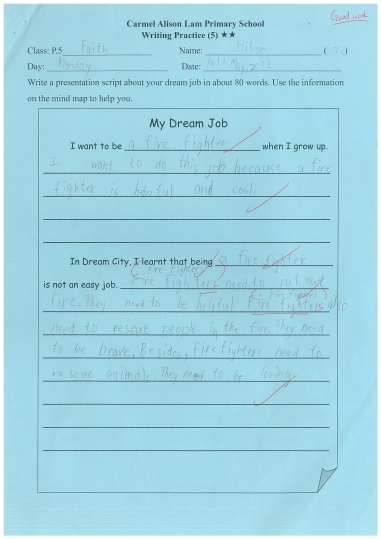 Good work
Carmel Alison Lam Primary School
Writing Practice (5) ★★
Class: P.5 Faith Name:
Day: Monday Date: 16th May, 2022
Write a presentation script about your dream job in about 80 words. Use the information
on the mind map to help you.
My Dream Job
I want to be a fire fighter when I grow up.
I want to do this job because a fire
fighter is helpful and cool.
In Dream City, I learnt that being a fire fighter
(Fire fighters)
is not an easy job. Fire fighters need to put out
(Fire fighters)
fire. They need to be helpful Fire fighters also
need to rescue people in the fire. They need
to be brave. Besides, fire fighters need to
rescue animals. They need to be loving.